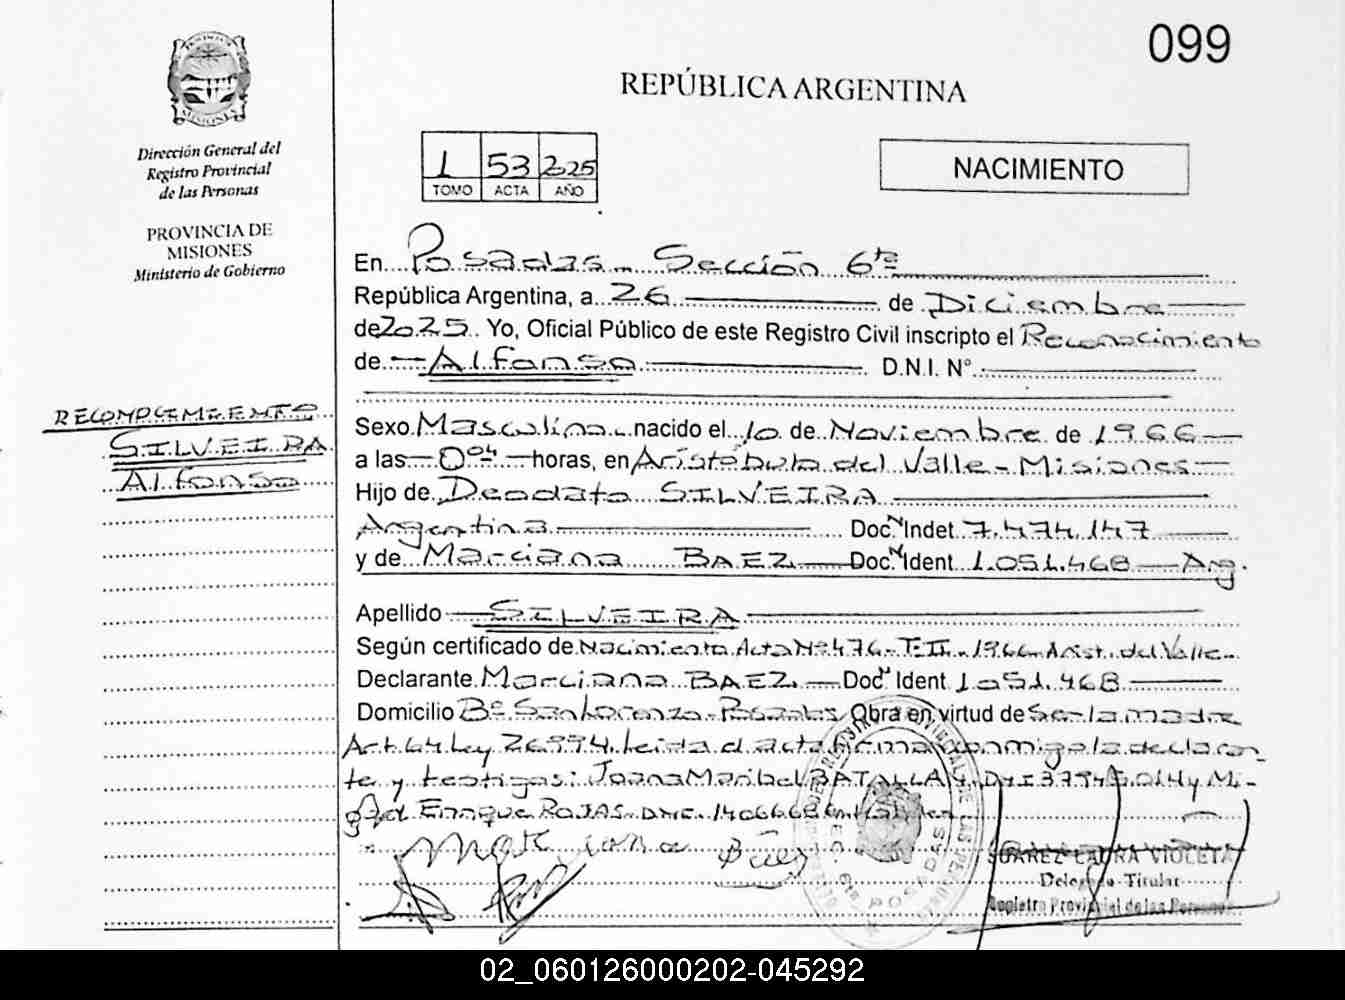 099
REPÚBLICA ARGENTINA
PROVINCIA DE MISIONES
Dirección General del
Registro Provincial
de las Personas
PROVINCIA DE
MISIONES
Ministerio de Gobierno
1 53 2025
TOMO ACTA AÑO
NACIMIENTO
En Posadas - Sección 6ta
República Argentina, a 26 de Diciembre
de 2025 Yo, Oficial Público de este Registro Civil inscripto el Reconocimiento
de Alfonso D.N.I. N°
RECONOCIMIENTO
SILVEIRA
Alfonso
Sexo Masculino nacido el 10 de Noviembre de 1966
a las 0 horas, en Aristóbulo del Valle - Misiones
Hijo de Deodato SILVEIRA
Argentina Doc. Indet 7.474.147
y de Marciana BAEZ Doc. Ident 1.051.468 Arg.
Apellido SILVEIRA
Según certificado de Nacimiento Acta Nº 476 - T: II - 1966 - Arist. del Valle
Declarante Marciana BAEZ Doc Ident 1051.468
Domicilio Bº San Lorenzo - Posadas Obra en virtud de Ser la madre
Art. 64 Ley 26994. Leida el acta firma conmigo la declaran-
te y testigos: Joana Maribel BATALLA DNI y Mi-
guel Enrique ROJAS
Marciana Báez
SUAREZ LAURA VIOLETA
Delegada Titular
Registro Provincial de las Personas
6ta. POSADAS
02_060126000202-045292